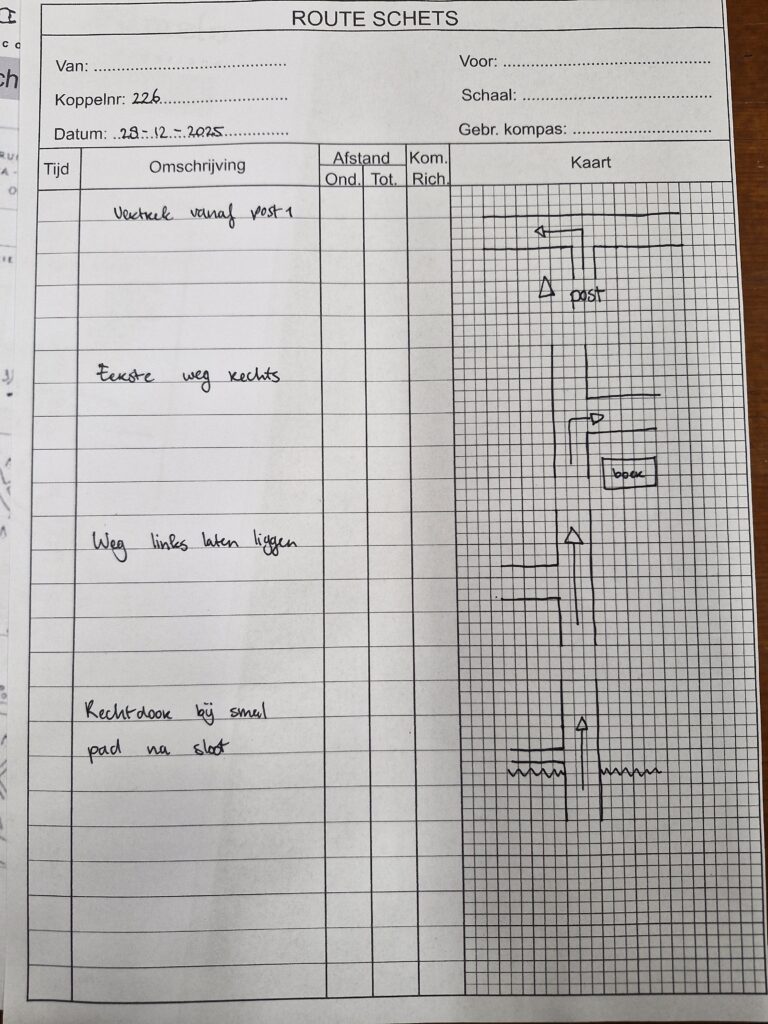 ROUTE SCHETS
Van: ........................................
Voor: ...........................................
Koppelnr: 226...........................
Schaal: .......................................
Datum: ..28-12-2025..............
Gebr. kompas: ..............................
Tijd
Omschrijving
Afstand
Ond.
Tot.
Kom.
Rich.
Kaart
Vertrek vanaf post 1
post
Eerste weg rechts
boer
Weg links laten liggen
Rechtdoor bij smal
pad na sloot